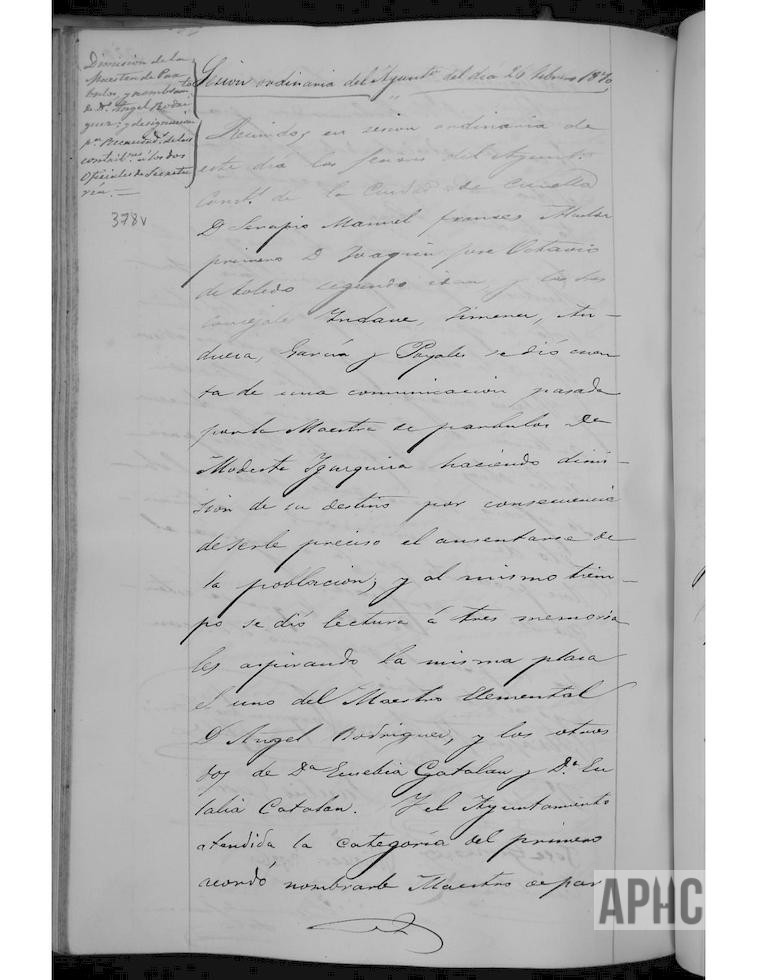 Dimision de la
Maestra de Par
bulos, y nombram.to
de D.n Angel Rodri
guez: y designacion
p.a Recaudad.s de las
contrib.nes á los dos
Oficiales de Secreta
ría. —
378v
Sesion ordinaria del Ayunt.o del dia 26 febrero 1870
Reunidos en sesion ordinaria de
este dia los señores del Ayunt.o
Const.l de la Ciudad de Corella
D Serapio Manuel Frances Alcalde
primero D Joaquin Jose Octavio
de toledo segundo idem, y los tres
concejales Yndave, Ximenez, An-
dueza, García y Poyales se dió cuen
ta de una comunicacion pasada
por la Maestra de parbulos D.a
Modesta Yzurquiza haciendo dimi-
sion de su destino por consecuencia
de serle preciso el ausentarse de
la poblacion; y al mismo tiem-
po se dió lectura á tres memoria
les aspirando la misma plaza
el uno del Maestro Elemental
D Angel Rodriguez, y los otros
dos de D.a Eusebia Catalan y D.a Eu
lalia Catalan. Y el Ayuntamiento
atendida la categoría del primero
acordó nombrarle Maestro de par
APHC